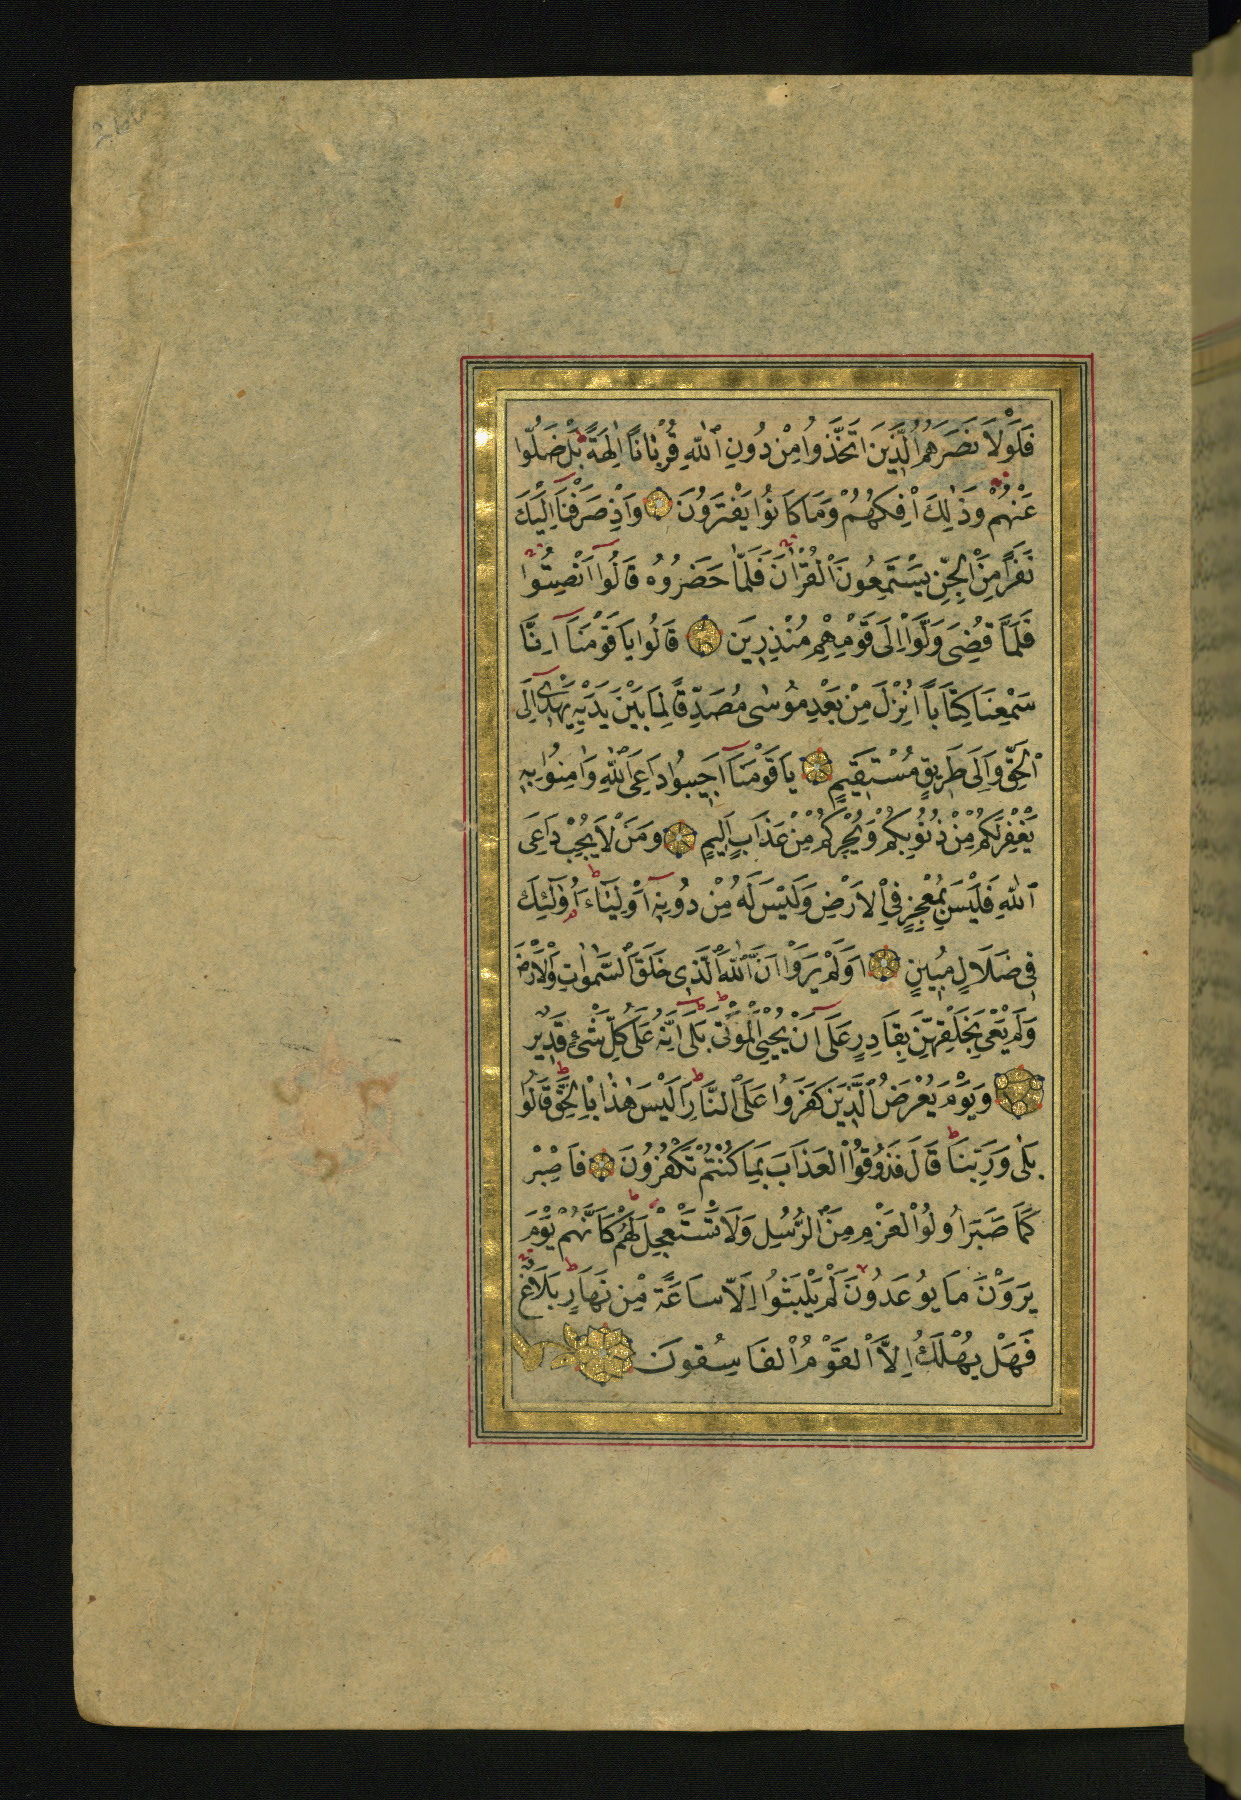 فَلَوْلَا نَصَرَهُمُ الَّذِينَ اتَّخَذُوا مِنْ دُونِ اللّٰهِ قُرْبَانًا اٰلِهَةً بَلْ ضَلُّوا
عَنْهُمْ وَذٰلِكَ اِفْكُهُمْ وَمَا كَانُوا يَفْتَرُونَ وَاِذْ صَرَفْنَا اِلَيْكَ
نَفَرًا مِنَ الْجِنِّ يَسْتَمِعُونَ الْقُرْاٰنَ فَلَمَّا حَضَرُوهُ قَالُوا اَنْصِتُوا
فَلَمَّا قُضِيَ وَلَّوْا اِلٰى قَوْمِهِمْ مُنْذِرِينَ قَالُوا يَا قَوْمَنَا اِنَّا
سَمِعْنَا كِتَابًا اُنْزِلَ مِنْ بَعْدِ مُوسٰى مُصَدِّقًا لِمَا بَيْنَ يَدَيْهِ يَهْدِى اِلَى
الْحَقِّ وَاِلٰى طَرِيقٍ مُسْتَقِيمٍ يَا قَوْمَنَا اَجِيبُوا دَاعِيَ اللّٰهِ وَاٰمِنُوا بِهِ
يَغْفِرْ لَكُمْ مِنْ ذُنُوبِكُمْ وَيُجِرْكُمْ مِنْ عَذَابٍ اَلِيمٍ وَمَنْ لَا يُجِبْ دَاعِيَ
اللّٰهِ فَلَيْسَ بِمُعْجِزٍ فِي الْاَرْضِ وَلَيْسَ لَهُ مِنْ دُونِهِ اَوْلِيَاءُ اُولٰئِكَ
فِي ضَلَالٍ مُبِينٍ اَوَلَمْ يَرَوْا اَنَّ اللّٰهَ الَّذِي خَلَقَ السَّمٰوَاتِ وَالْاَرْضَ
وَلَمْ يَعْيَ بِخَلْقِهِنَّ بِقَادِرٍ عَلٰى اَنْ يُحْيِيَ الْمَوْتٰى بَلٰى اِنَّهُ عَلٰى كُلِّ شَىْءٍ قَدِيرٌ
وَيَوْمَ يُعْرَضُ الَّذِينَ كَفَرُوا عَلَى النَّارِ اَلَيْسَ هٰذَا بِالْحَقِّ قَالُوا
بَلٰى وَرَبِّنَا قَالَ فَذُوقُوا الْعَذَابَ بِمَا كُنْتُمْ تَكْفُرُونَ فَاصْبِرْ
كَمَا صَبَرَ اُولُوا الْعَزْمِ مِنَ الرُّسُلِ وَلَا تَسْتَعْجِلْ لَهُمْ كَاَنَّهُمْ يَوْمَ
يَرَوْنَ مَا يُوعَدُونَ لَمْ يَلْبَثُوا اِلَّا سَاعَةً مِنْ نَهَارٍ بَلَاغٌ
فَهَلْ يُهْلَكُ اِلَّا الْقَوْمُ الْفَاسِقُونَ